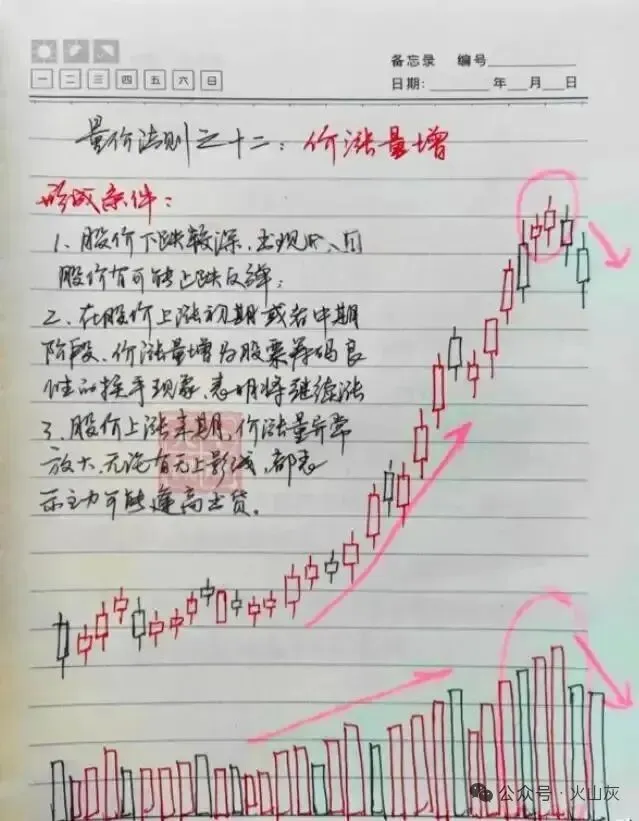 一 二 三 四 五 六 日
备忘录 编号
日期: 年 月 日
量价法则之十二：价涨量增
形成条件：
1、股价下跌较深，出现
股价有可能止跌反弹；
2、在股价上涨初期或者中期
阶段、价涨量增为股票筹码良
性的换手现象，表明将继续涨
3、股价上涨末期，价涨量异常
放大，无论有无上影线，都表
示主力可能逢高出货。
公众号·火山灰